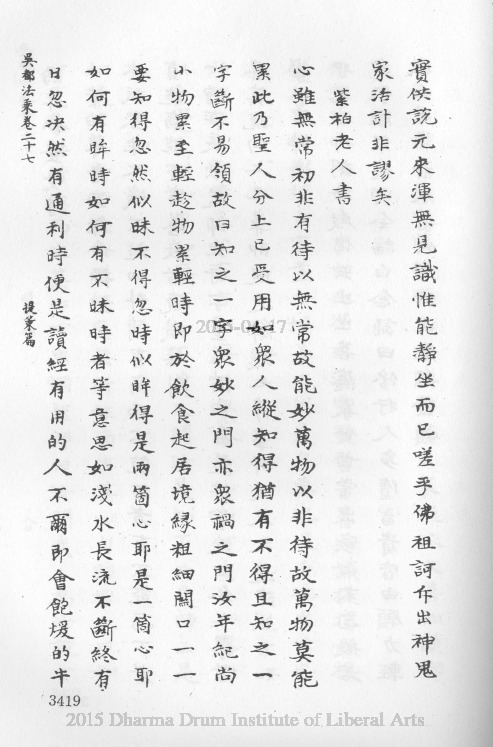 實供説元來渾無見識惟能靜坐而已嗟乎佛祖訶斥出神鬼
家活計非謬矣
紫柏老人書
心雖無常初非有待以無常故能妙萬物以非待故萬物莫能
累此乃聖人分上已受用如衆人縱知得猶有不得且知之一
字斷不易領故曰知之一字衆妙之門亦衆禍之門汝年紀尚
小物累至輕趁物累輕時即於飲食起居境緣粗細關口一一
要知得忽然似昧不得忽時似眸得是兩箇心耶是一箇心耶
如何有眸時如何有不昧時者等意思如淺水長流不斷終有
日忽决然有通利時便是讀經有用的人不爾即會飽煖的牛
吳都法乘卷二十七
提策篇
3419
2015 Dharma Drum Institute of Liberal Arts